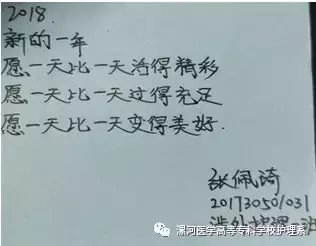 2018.
新的一年
愿一天比一天活得精彩
愿一天比一天过得充足
愿一天比一天变得美好.
张佩琦
20173050/031
涉外护理一班
漯河医学高等专科学校护理系